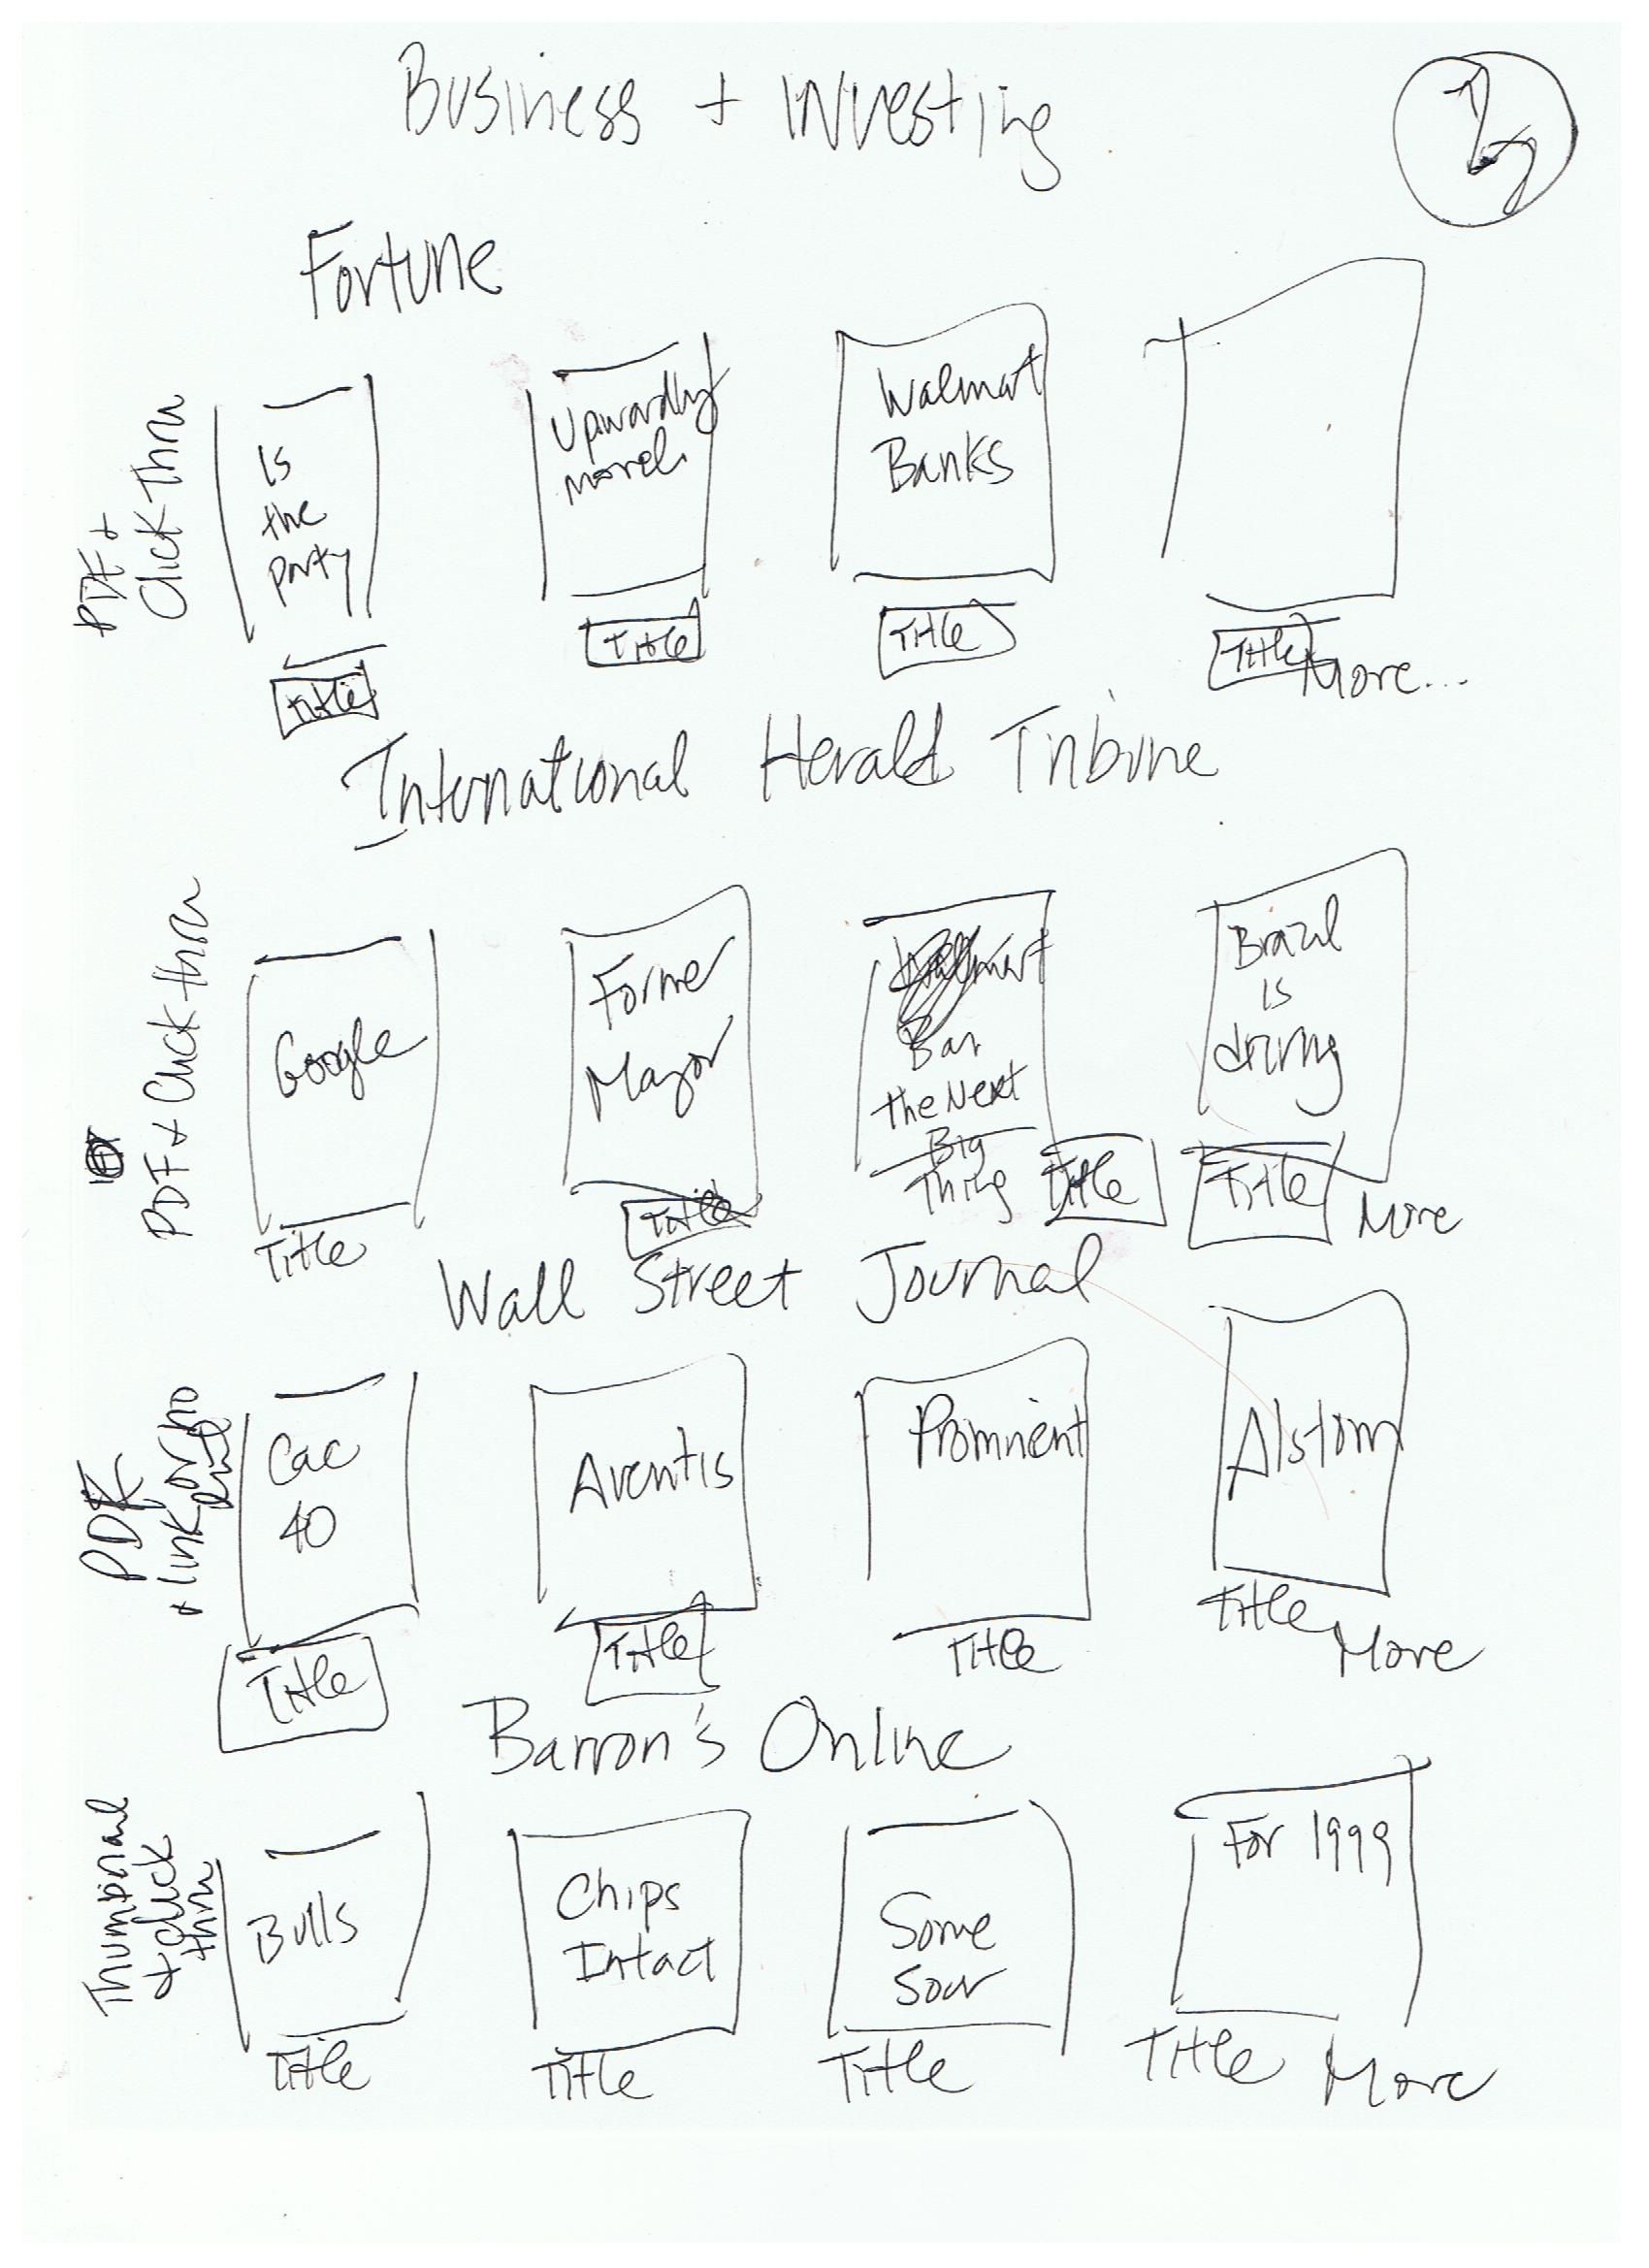 Business + Investing
Fortune
PDF +
Click Thru
Is
the
party
Title
Upwardly
Title
Walmart
Banks
Title
Title
More...
International Herald Tribune
PDF + Click thru
Google
Title
Former
Mayor
Title
Bar
the Next
Big
Thing
Title
Brazil
is
driving
Title
More
Wall Street Journal
PDF
+ link or
Cac
40
Title
Aventis
Title
Prominent
Title
Alstom
Title
More
Barron's Online
Thumbnail
+ click
thru
Bulls
Title
Chips
Intact
Title
Some
Soar
Title
For 1999
Title
More